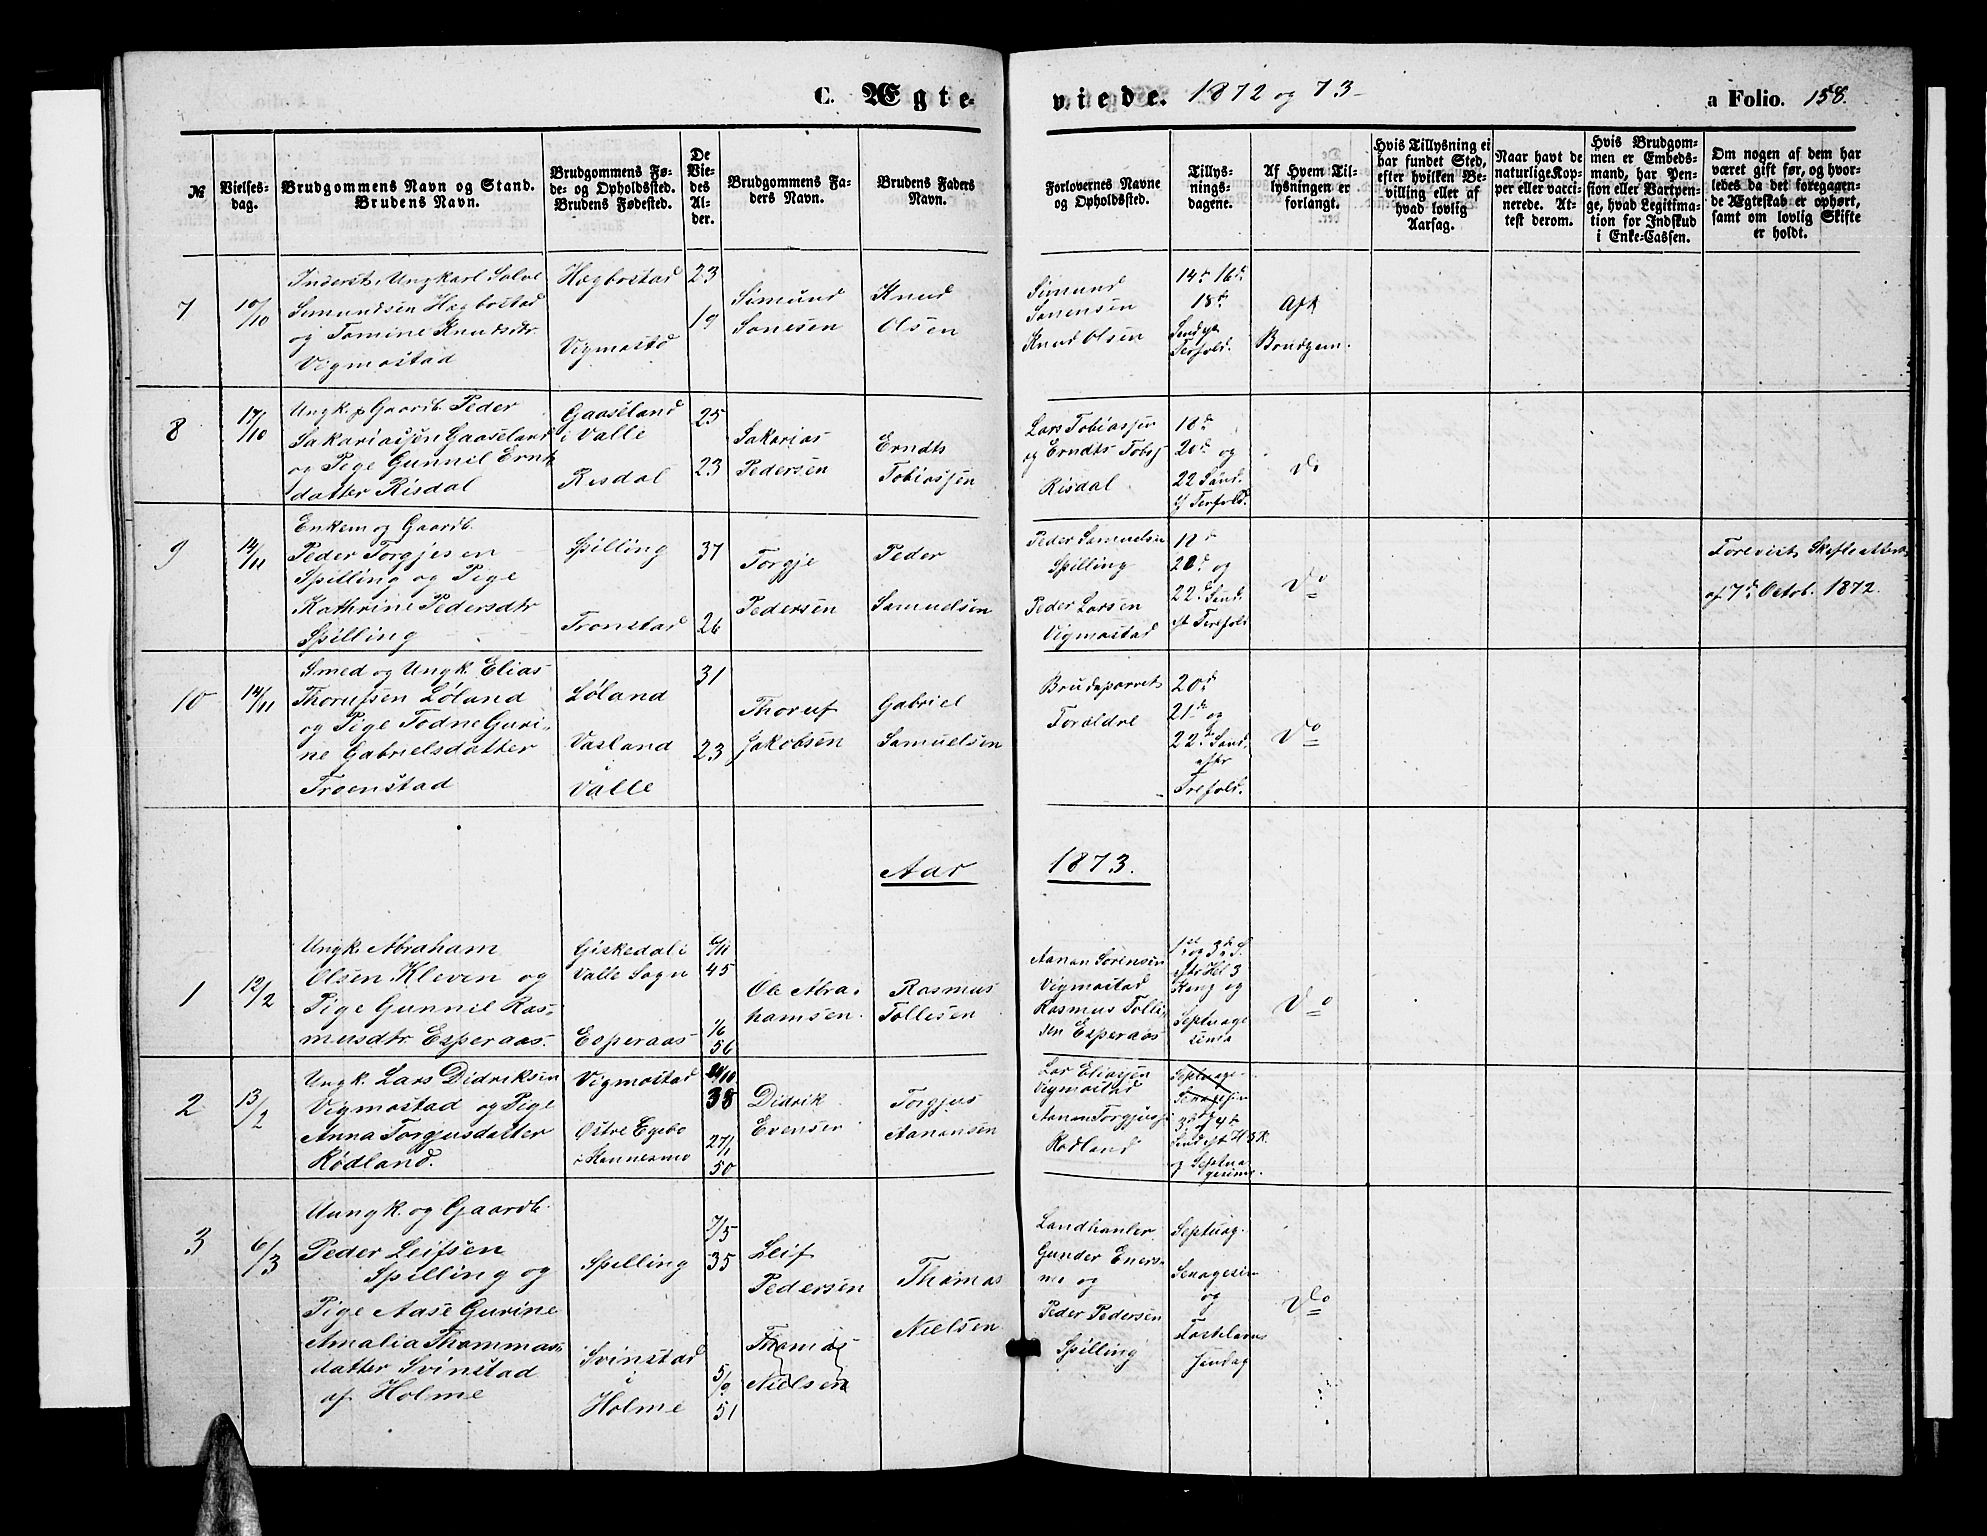 C. Ægte-
viede. 1872 og 73
a Folio. 158.
№
Vielses-
dag.
Brudgommens Navn og Stand.
Brudens Navn.
Brudgommens Fø-
de- og Opholdssted.
Brudens Fødested.
De
Vie-
des
Al-
der.
Brudgommens Fa-
ders Navn.
Brudens Faders
Navn.
Forlovernes Navne
og Opholdssted.
Tillys-
nings-
dagene.
Af Hvem Til-
lysningen er
forlangt.
Hvis Tillysning ei
har fundet Sted,
efter hvilken Be-
villing eller af
hvad lovlig
Aarsag.
Naar havt de
naturlige Kop-
per eller vacci-
nerede. At-
test derom.
Hvis Brudgom-
men er Embeds-
mand, har Pen-
sion eller Vartpen-
ge, hvad Legitima-
tion for Indskud
i Enke-Cassen.
Om nogen af dem har
været gift før, og hvor-
ledes da det foregaaen-
de Ægteskab er ophørt,
samt om lovlig Skifte
er holdt.
7
10/10
Inderst, Ungkarl Salve
Simundsen Hægbostad
og Tomine Knudsdtr
Vigmostad
Hægbostad
Vigmostd
23
19
Simund
Sonesen
Knud
Olsen
Simund
Sonensen
Knud Olsen
14de 16de
18de
Søndge
Terfold.
Aft
Brudgom.
8
17/10
Ungk. & Gaardb. Peder
Sakariassen Gaaseland
og Pige Gunnil Ernts
datter Risdal
Gaaseland
i Valle
Risdal
25
23
Sakarias
Pedersen
Erndts
Tobiassen
Lars Tobiassen
og Erndts Tobsj
Risdal
18de
20de og
22 Sønd.
e/ Terfold.
Do
9
14/11
Enkem og Gaardb.
Peder Torgjesen
Spilling og Pige
Kathrine Pedersdtr
Spilling
Spilling
Tronstad
37
26
Torgje
Pedersen
Peder
Samuelsen
Peder Samuelsen
Spilling
Peder Larsen
Vigmostad
18de
20de og
22de Sønd.
eft Terefold
Do
Forevist Skifteattest
af 7de Octob. 1872.
10
14/11
Smed og Ungk. Elias
Thorufsen Løland
og Pige Todne Guri-
ne Gabrielsdatter
Troenstad
Løland
Vasland
i
Valle
31
23
Thoruf
Jakobsen
Gabriel
Samuelsen
Brudeparrets
Foraldre
20de
21de og
22de Sønd.
efter
Trefold.
Do
Aar
1873.
1
12/2
Ungk. Abraham
Olsen Kleven og
Pige Gunnil Ras-
musdtr Esperaas.
Giskedal i
Valle Sogn
Esperaas
6/11
45
1/6
56
Ole Abra-
hamsen
Rasmus
Tollisen
Aanan Sørensen
Vigmostad
Rasmus Tolli-
sen Esperaas
1ste og 3de S.
eftr Hel 3
Kong og
Septuage
sima
Do
2
13/2
Ungk. Lars Didriksen
Vigmostad og Pige
Anna Torgjusdatter
Rødland.
Vigmostad
Østre Egebo
i Hannesmo
38
27/1
50
Didrik
Evensen
Torgjus
Aanansen
Lar Eliassen
Vigmostad
Aanan Torgjussj
Rødland
3de og 4de
Sønd eft H 3 K.
og Septua-
gesima.
3
6/3
Uungk. og Gaardb.
Peder Leifsen
Spilling og
Pige Aase Gurine
Amalia Thammas-
datter Svinstad
af Holme
Spilling
Svinstad
i
Holme
7/5
35
5/9
51
Leif
Pedersen
Thomas
Nielsen
Thomas
Nielsen
Landhanler
Gunder Eners-
me og
Peder Pedersen
Spilling
Septuag.
Sexagesim
og
Fastelavns
Søndag
Do